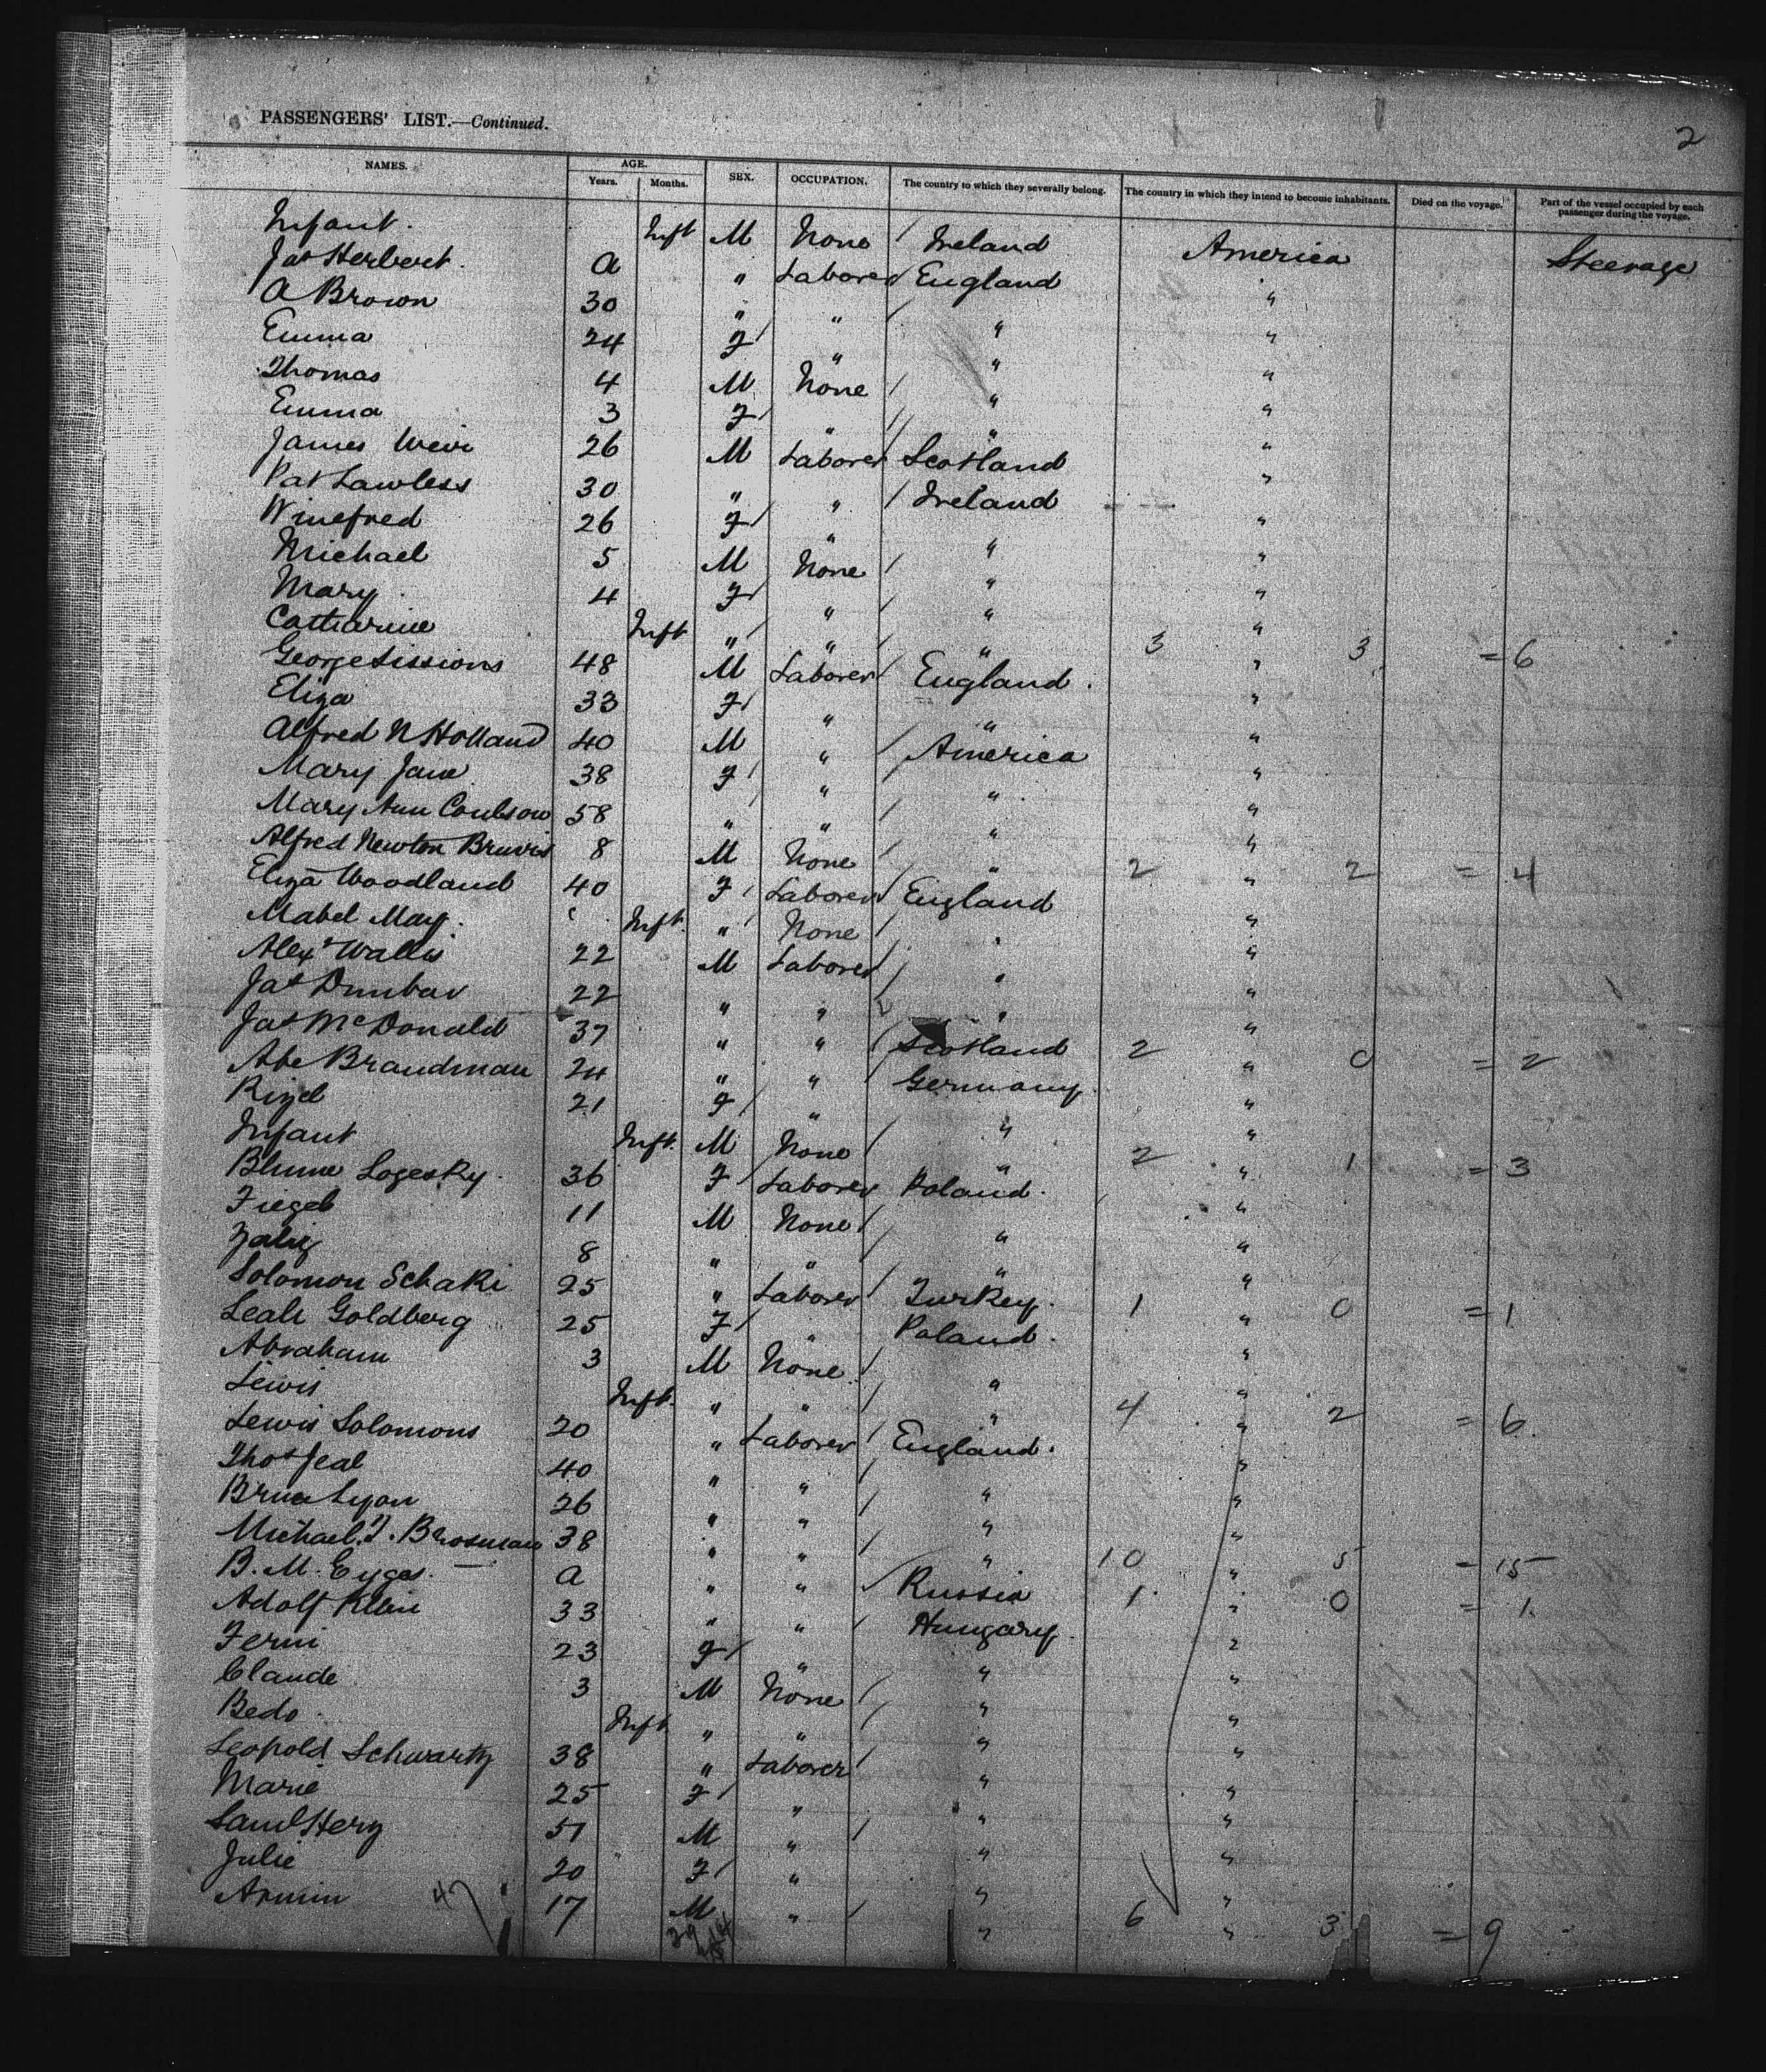 2
PASSENGERS' LIST.—Continued.
NAMES. AGE. Years. Months. SEX. OCCUPATION. The country to which they severally belong. The country in which they intend to become inhabitants. Died on the voyage. Part of the vessel occupied by each passenger during the voyage.
Infant. Inft M None Ireland America Steerage
Jas Herbert. a " Laborer England "
A Brown 30 " " " "
Emma 24 F " " "
Thomas 4 M None " "
Emma 3 F " " "
James Weir 26 M Laborer Scotland "
Pat Lawless 30 " " Ireland "
Winefred 26 F " " "
Michael 5 M None " "
Mary 4 F " " "
Catharine Inft " " " 3 " 3 = 6
George Sissions 48 M Laborer England. "
Eliza 33 F " " "
Alfred N Holland 40 M " America "
Mary Jane 38 F " " "
Mary Ann Coulson 58 " " " "
Alfred Newton 8 M None " 2 " 2 = 4
Eliza Woodland 40 F Laborer England "
Mabel May. Inft. " None " "
Alexr Wallis 22 M Laborer " "
Jas Dunbar 22 " " " "
Jas McDonald 37 " " Scotland 2 " 0 = 2
Abe Brandman 24 " " Germany. "
Rizel 21 F " " "
Infant Inft. M None " 2 " 1 = 3
Blume Logesky. 36 F Laborer Poland. "
Fiegel 11 M None " "
8 " " " "
Solomon Schaki 25 " Laborer Turkey. 1 " 0 = 1
Leah Goldberg 25 F " Poland. "
Abraham 3 M None " "
Lewis Inft. " " " 4 " 2 = 6.
Lewis Solomons 20 " Laborer England. "
Thos Jeal 40 " " " "
Lyon 26 " " " "
Michael J. Brosman 38 " " " 10 " 5 = 15
B. M. a " " Russia 1 " 0 = 1.
Adolf Klein 33 " " Hungary. "
Ferni 23 F " " "
Claude 3 M None " "
Bedo. Inft " " " "
Leopold Schwartz 38 " Laborer " "
Marie 25 F " " "
Saml Herz 51 M " " "
Julie 20 F " " "
Armin 17 M " " 6 " 3 = 9
47 29